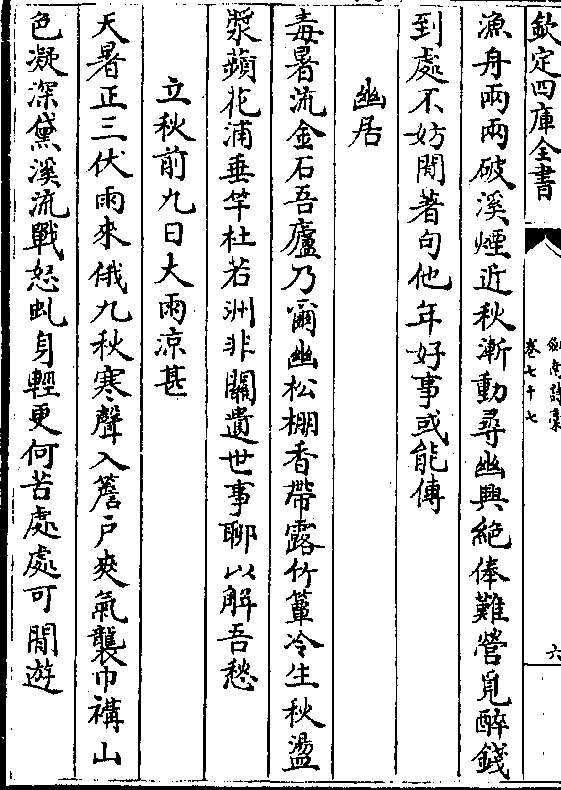 欽定四庫全書
劍南詩稾
卷七十七
六
漁舟兩兩破溪煙近秋漸動尋幽興絶俸難營覓醉錢
到處不妨閒著句他年好事或能傳
幽居
毒暑流金石吾廬乃爾幽松棚香帶露竹簟冷生秋盪
槳蘋花浦垂竿杜若洲非關遺世事聊以解吾愁
立秋前九日大雨涼甚
天暑正三伏雨來俄九秋寒聲入簷戶爽氣襲巾褠山
色凝深黛溪流戰怒虬身輕更何苦處處可閒遊